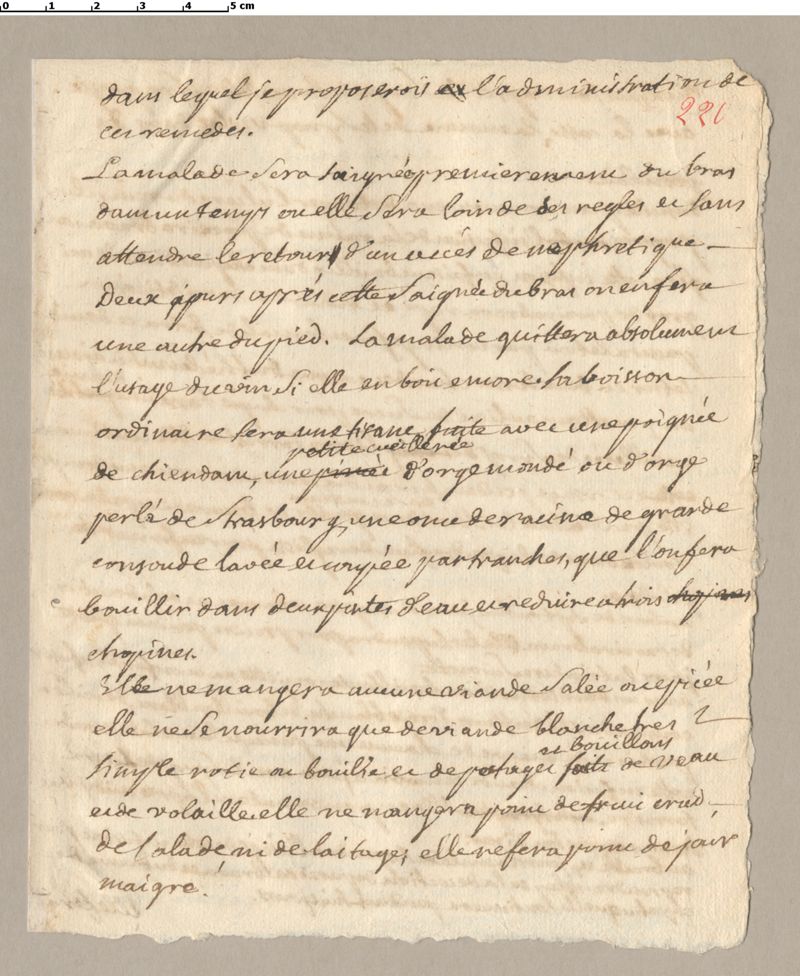 0 1 2 3 4 5 cm
dans lequel je proposerois l'administration de
221
ces remedes.
La malade sera saignée premierement du bras
dans un temps ou elle sera loin de ses regles et sans
attendre le retour d'un accés de nephretique
Deux jours aprés cette saignée du bras on en fera
une autre du pied. La malade quittera absolument
l'usage du vin si elle en boit encore. sa boisson
ordinaire sera une tisane faite avec une poignée
petite cueillerée
de chiendant, une pincée d'orge mondé ou d'orge
perlé de Strasbourg, une once de racine de grande
consoude lavée et coupée par tranches, que l'on fera
bouillir dans deux pintes d'eau et reduire a trois chopines
chopines.
Elle ne mangera aucune viande salée ou epicée
elle ne se nourrira que de viande blanche tres
et bouillons
simple rotie ou bouillie et de potages faits de veau
et de volaille. elle ne mangera point de fruit crud
de salade, ni de laitage, elle ne fera point de jour
maigre.